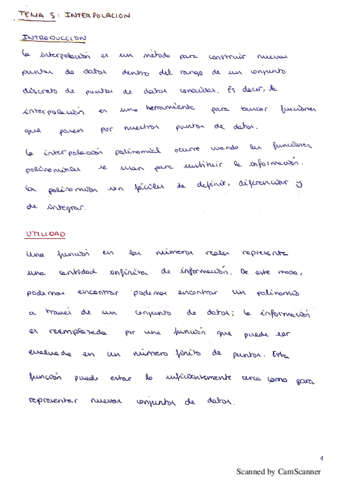 TEMA 5: INTERPOLACION
INTRODUCCION
La interpolación es un método para construir nuevos
puntos de datos dentro del rango de un conjunto
discreto de puntos de datos conocidos. Es decir, la
interpolación es una herramienta para buscar funciones
que pasen por nuestros puntos de datos.
La interpolación polinomial ocurre cuando las funciones
polinomiales se usan para sustituir la información.
Los polinomios son fáciles de definir, diferenciar y
de integrar.
UTILIDAD
Una función en los números reales representa
una cantidad infinita de información. De este modo,
podemos encontrar podemos encontrar un polinomio
a través de un conjunto de datos; la información
es reemplazada por una función que puede ser
evaluada en un número finito de puntos. Esta
función puede estar lo suficientemente cerca como para
representar nuevos conjuntos de datos.
1
Scanned by CamScanner